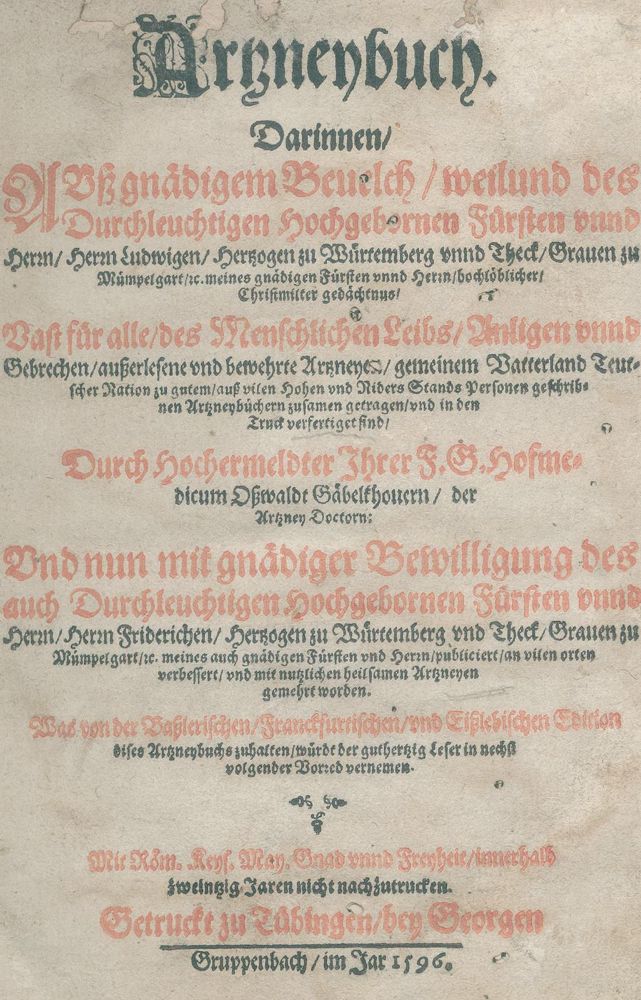 Artzneybuch.
Darinnen/
AVß gnädigem Beuelch / weilund des
Durchleuchtigen Hochgebornen Fürsten vnnd
Herrn/ Herrn Ludwigen/ Hertzogen zu Würtemberg vnnd Theck/ Grauen zu
Mümpelgart/ꝛc. meines gnädigen Fürsten vnnd Herrn/hochlöblicher/
Christmilter gedächtnus/
Vast für alle/des Menschlichen Leibs/ Anligen vnnd
Gebrechen/außerlesene vnd bewehrte Artzneyen/ gemeinem Vatterland Teut-
scher Nation zu gutem/auß vilen Hohen vnd Niders Stands Personen geschrib-
nen Artzneybüchern zusamen getragen/vnd in den
Truck verfertiget sind/
Durch Hochermeldter Ihrer F.G. Hofme-
dicum Oßwaldt Gäbelkhouern/ der
Artzney Doctorn:
Vnd nun mit gnädiger Bewilligung des
auch Durchleuchtigen Hochgebornen Fürsten vnnd
Herrn/Herrn Friderichen/ Hertzogen zu Würtemberg vnd Theck/Grauen zu
Mümpelgart/ꝛc. meines auch gnädigen Fürsten vnd Herrn/publiciert/an vilen orten
verbessert/ vnd mit nutzlichen heilsamen Artzneyen
gemehrt worden.
Was von der Baßlerischen/Franckfurtischen/vnd Eißlebischen Edition
dises Artzneybuchs zuhalten/würdt der guthertzig Leser in nechst
volgender Vorred vernemen.
Mit Röm. Keys. May. Gnad vnnd Freyheit/innerhalb
zweintzig Jaren nicht nachzutrucken.
Getruckt zu Tübingen/bey Georgen
Gruppenbach/ im Jar 1596.